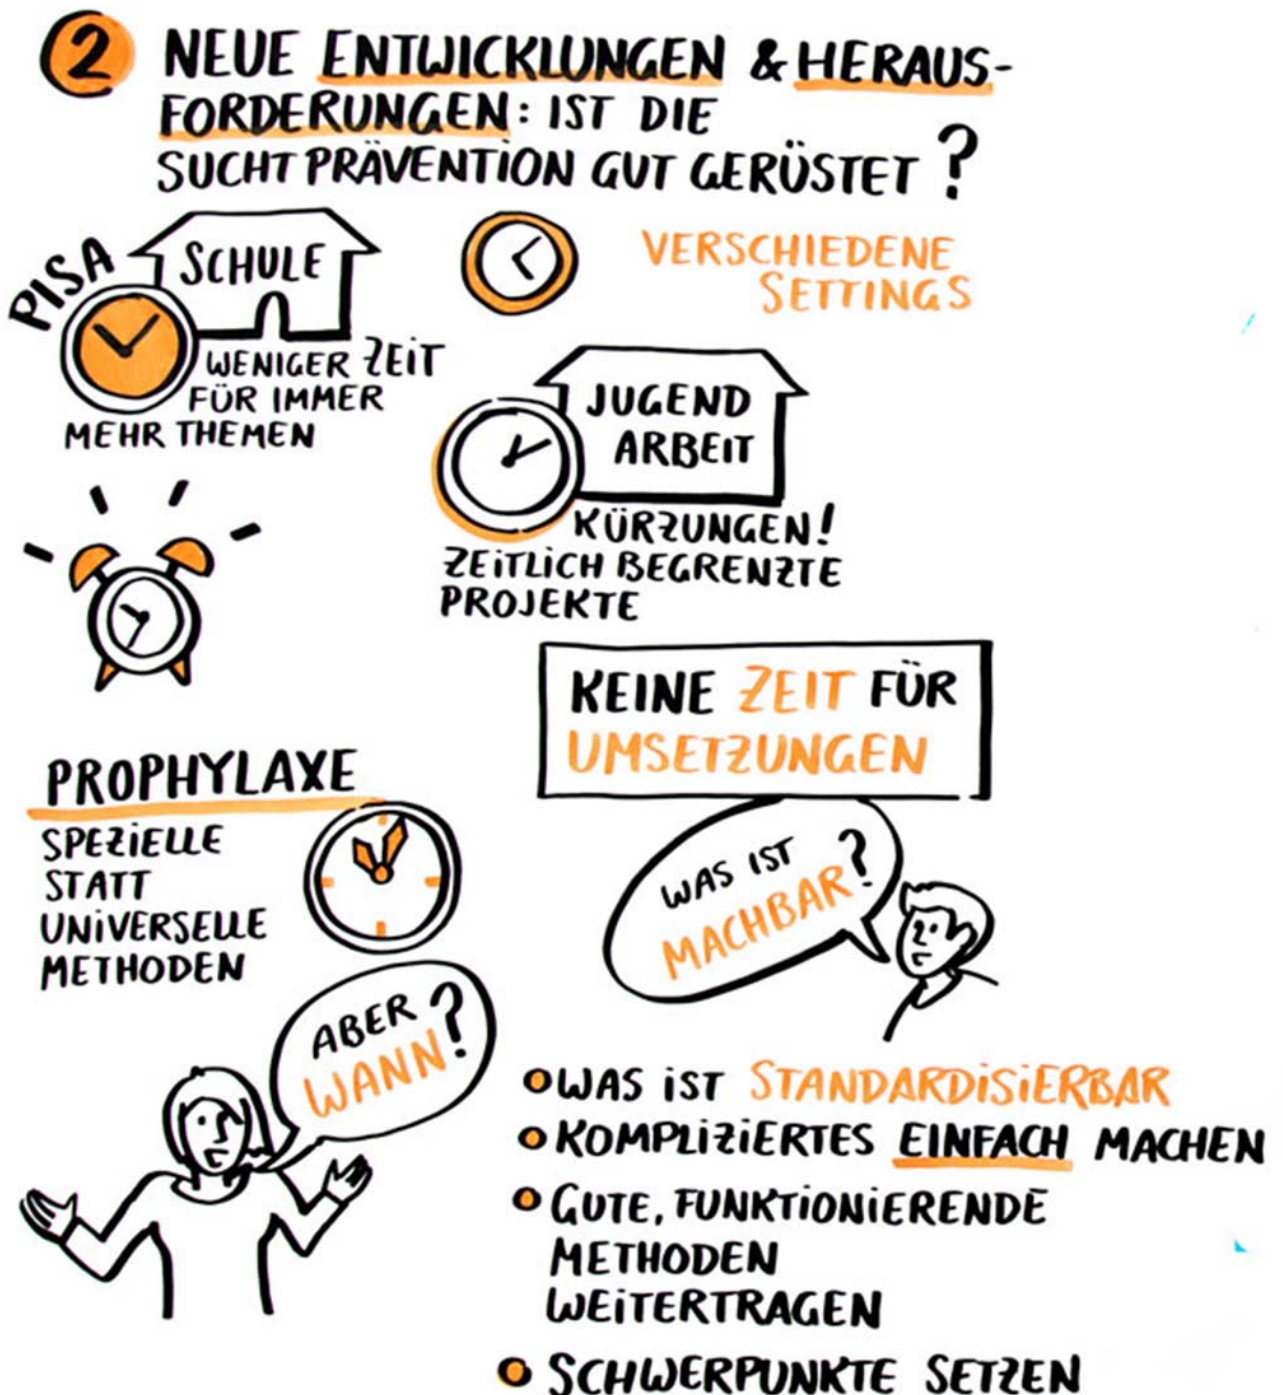 2 NEUE ENTWICKLUNGEN & HERAUS-
FORDERUNGEN: IST DIE
SUCHTPRÄVENTION GUT GERÜSTET?
PISA
SCHULE
WENIGER ZEIT
FÜR IMMER
MEHR THEMEN
VERSCHIEDENE
SETTINGS
JUGEND
ARBEIT
KÜRZUNGEN!
ZEITLICH BEGRENZTE
PROJEKTE
KEINE ZEIT FÜR
UMSETZUNGEN
PROPHYLAXE
SPEZIELLE
STATT
UNIVERSELLE
METHODEN
WAS IST
MACHBAR?
ABER
WANN?
WAS IST STANDARDISIERBAR
KOMPLIZIERTES EINFACH MACHEN
GUTE, FUNKTIONIERENDE
METHODEN
WEITERTRAGEN
SCHWERPUNKTE SETZEN